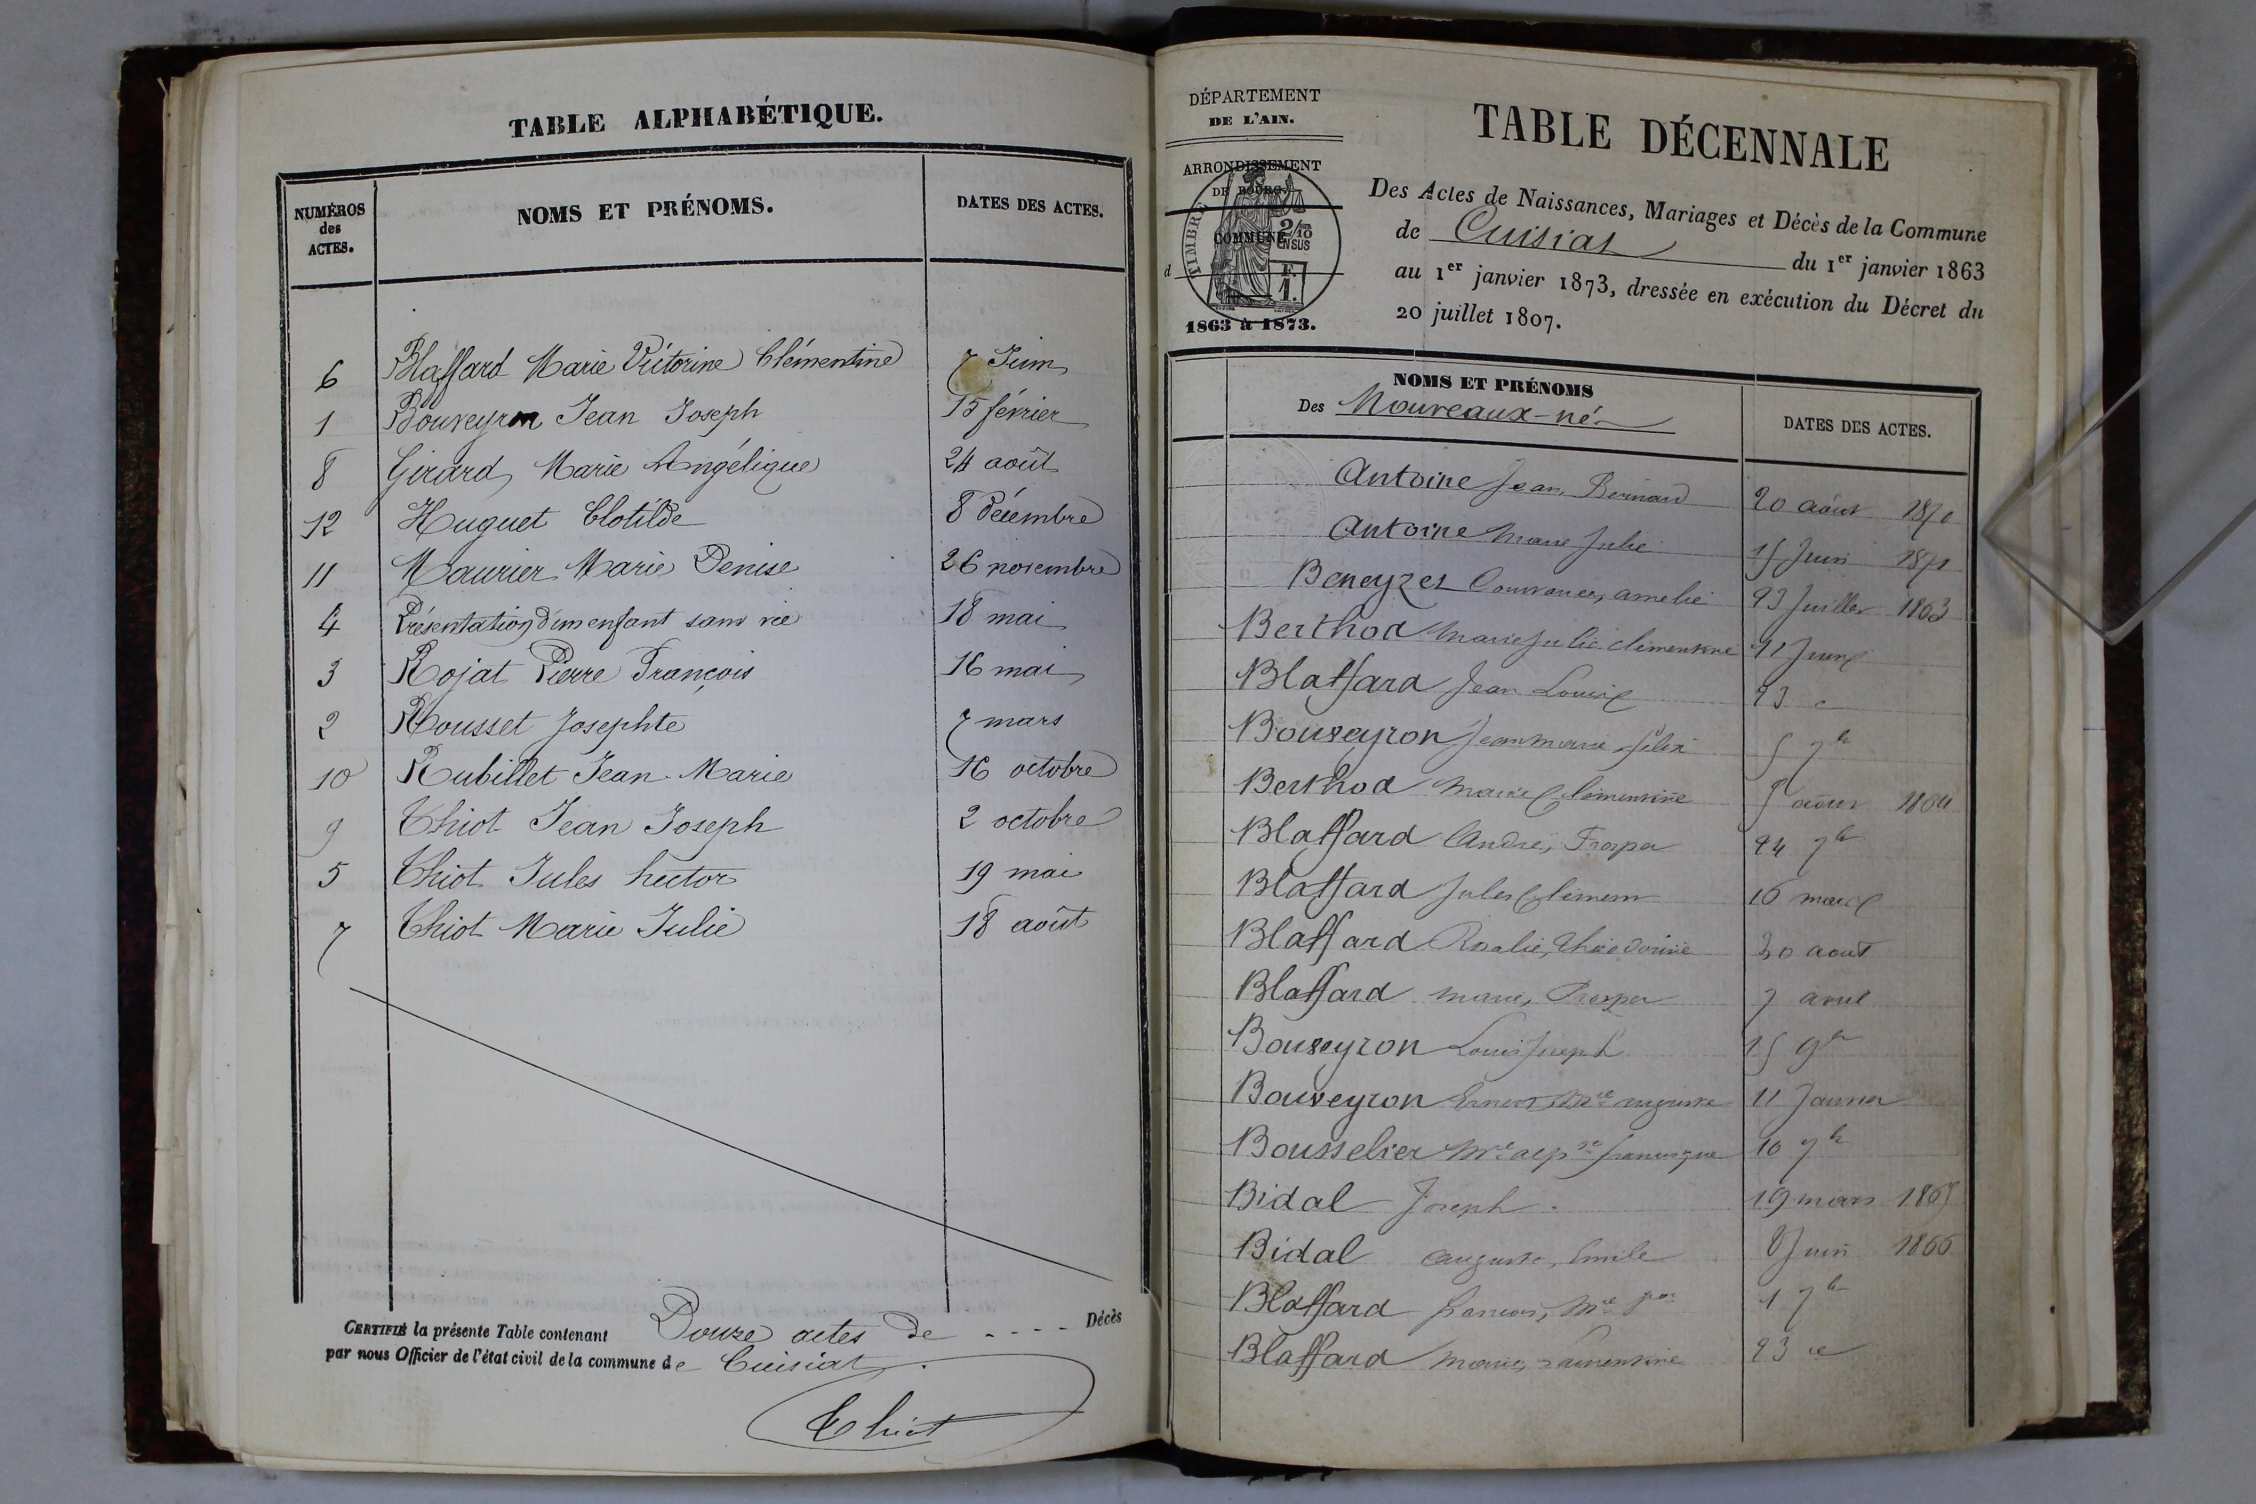 TABLE ALPHABÉTIQUE.
NUMÉROS des ACTES. NOMS ET PRÉNOMS. DATES DES ACTES.
6 Blaffard Marie Victorine Clémentine 7 Juin
1 Bouveyron Jean Joseph 15 février
8 Girard Marie Angélique 24 août
12 Huguet Clotilde 8 décembre
11 Maurier Marie Denise 26 novembre
4 Présentation d'un enfant sans vie 18 mai
3 Rojat Pierre François 16 mai
2 Rousset Josephte 7 mars
10 Rubillet Jean Marie 16 octobre
9 Thiot Jean Joseph 2 octobre
5 Thiot Jules hector 19 mai
7 Thiot Marie Julie 18 août
CERTIFIÉ la présente Table contenant Douze actes de - - - - Décès
par nous Officier de l'état civil de la commune de Cuisiat.
Thiot
DÉPARTEMENT
DE L'AIN.
ARRONDISSEMENT
DE BOURG.
TIMBRE
2/10 EN SUS
COMMUNE
d
F.
1.
1863 à 1873.
TABLE DÉCENNALE
Des Actes de Naissances, Mariages et Décès de la Commune
de Cuisiat du 1er janvier 1863
au 1er janvier 1873, dressée en exécution du Décret du
20 juillet 1807.
NOMS ET PRÉNOMS
Des Nouveaux-né
DATES DES ACTES.
Antoine Jean Bernard 20 août 1870
Antoine Marie Julie 15 Juin 1871
Beneyzet amelie 23 Juillet 1863
Berthod Marie Julie clementine 21
Blaffard Jean Louis 23
Bouveyron Jean Marie felix 5 7b
Berthod Marie Clementine 5 août 1864
Blaffard André, Prosper 24 7b
Blaffard Jules Clement 16 mars
Blaffard Rosalie, Théodorine 30 aout
Blaffard Marie, Prosper 7 avril
Bouveyron Louis Joseph 15 9b
Bouveyron Ernest auguste 11 Janvier
Bousselier 10 7b
Bidal Joseph 19 mars 1865
Bidal auguste, Emile 8 Juin 1866
Blaffard francois, 1 7b
Blaffard Marie, 23